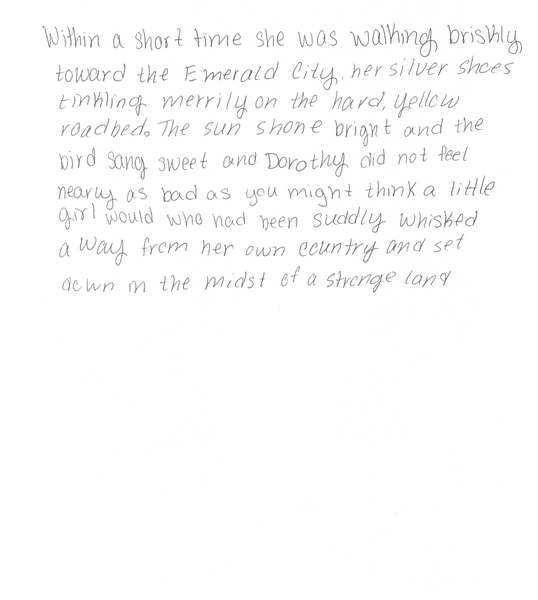 Within a short time she was walking briskly
toward the Emerald City, her silver shoes
tinkling merrily on the hard, yellow
roadbed. The sun shone bright and the
bird sang sweet and Dorothy did not feel
nearly as bad as you might think a little
girl would who had been suddly whisked
a way from her own country and set
down in the midst of a strange land